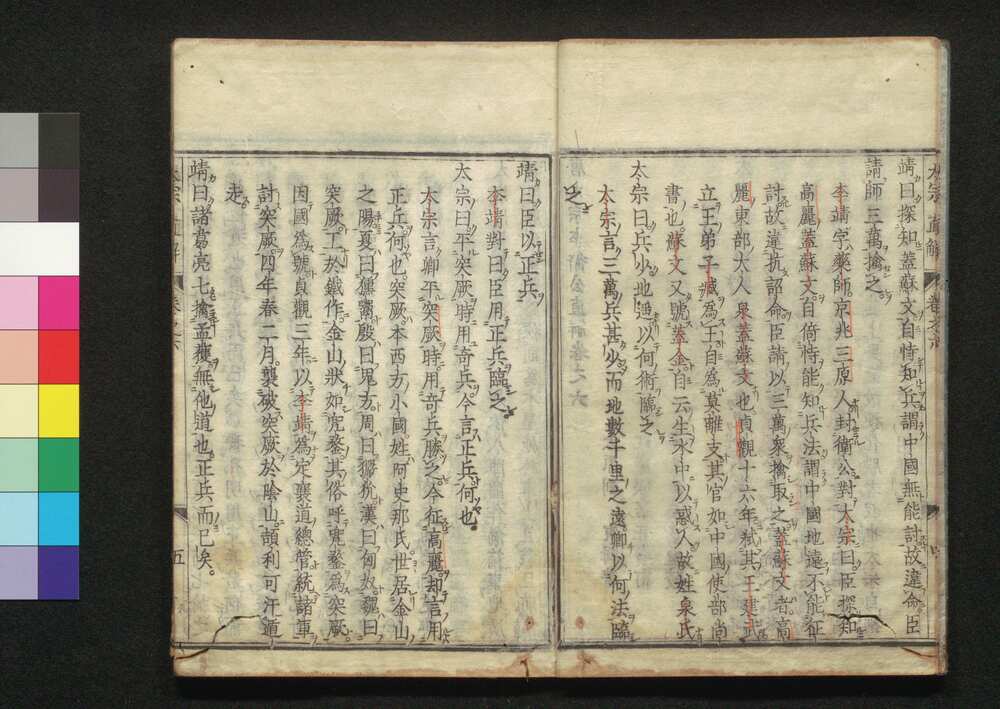 靖曰探知蓋蘇文自恃知兵謂中國無能討故違命臣
請師三萬擒之
李靖字藥師京兆三原人封衛公對太宗曰臣探知
高麗蓋蘇文自倚恃能知兵法謂中國地遠不能征
討故違抗詔命臣請以三萬衆擒取之蓋蘇文者高
麗東部大人泉蓋蘇文也貞觀十六年弑其王建武
立王弟子臧為王自為莫離支其官如中國使部尚
書也蘇文又號蓋金自云生水中以惑人故姓泉氏
太宗曰兵少地遥以何術臨之
太宗言三萬兵甚少而地數千里之遠卿以何法臨
之
靖曰臣以正兵
李靖對曰臣用正兵臨之
太宗曰平突厥時用奇兵今言正兵何也
太宗言卿平突厥時用奇兵勝之今征高麗却言用
正兵何也突厥本西方小國姓阿史那氏世居金山
之陽夏曰獯鬻殷曰鬼方周曰玁狁漢曰匈奴魏曰
突厥工於鐵作金山狀如兜鍪其俗呼兜鍪為突厥
因國為號貞觀三年以李靖為定襄道總管統諸軍
討突厥四年春二月襲破突厥於陰山頡利可汗遁
走
靖曰諸葛亮七擒孟獲無他道也正兵而已矣
五